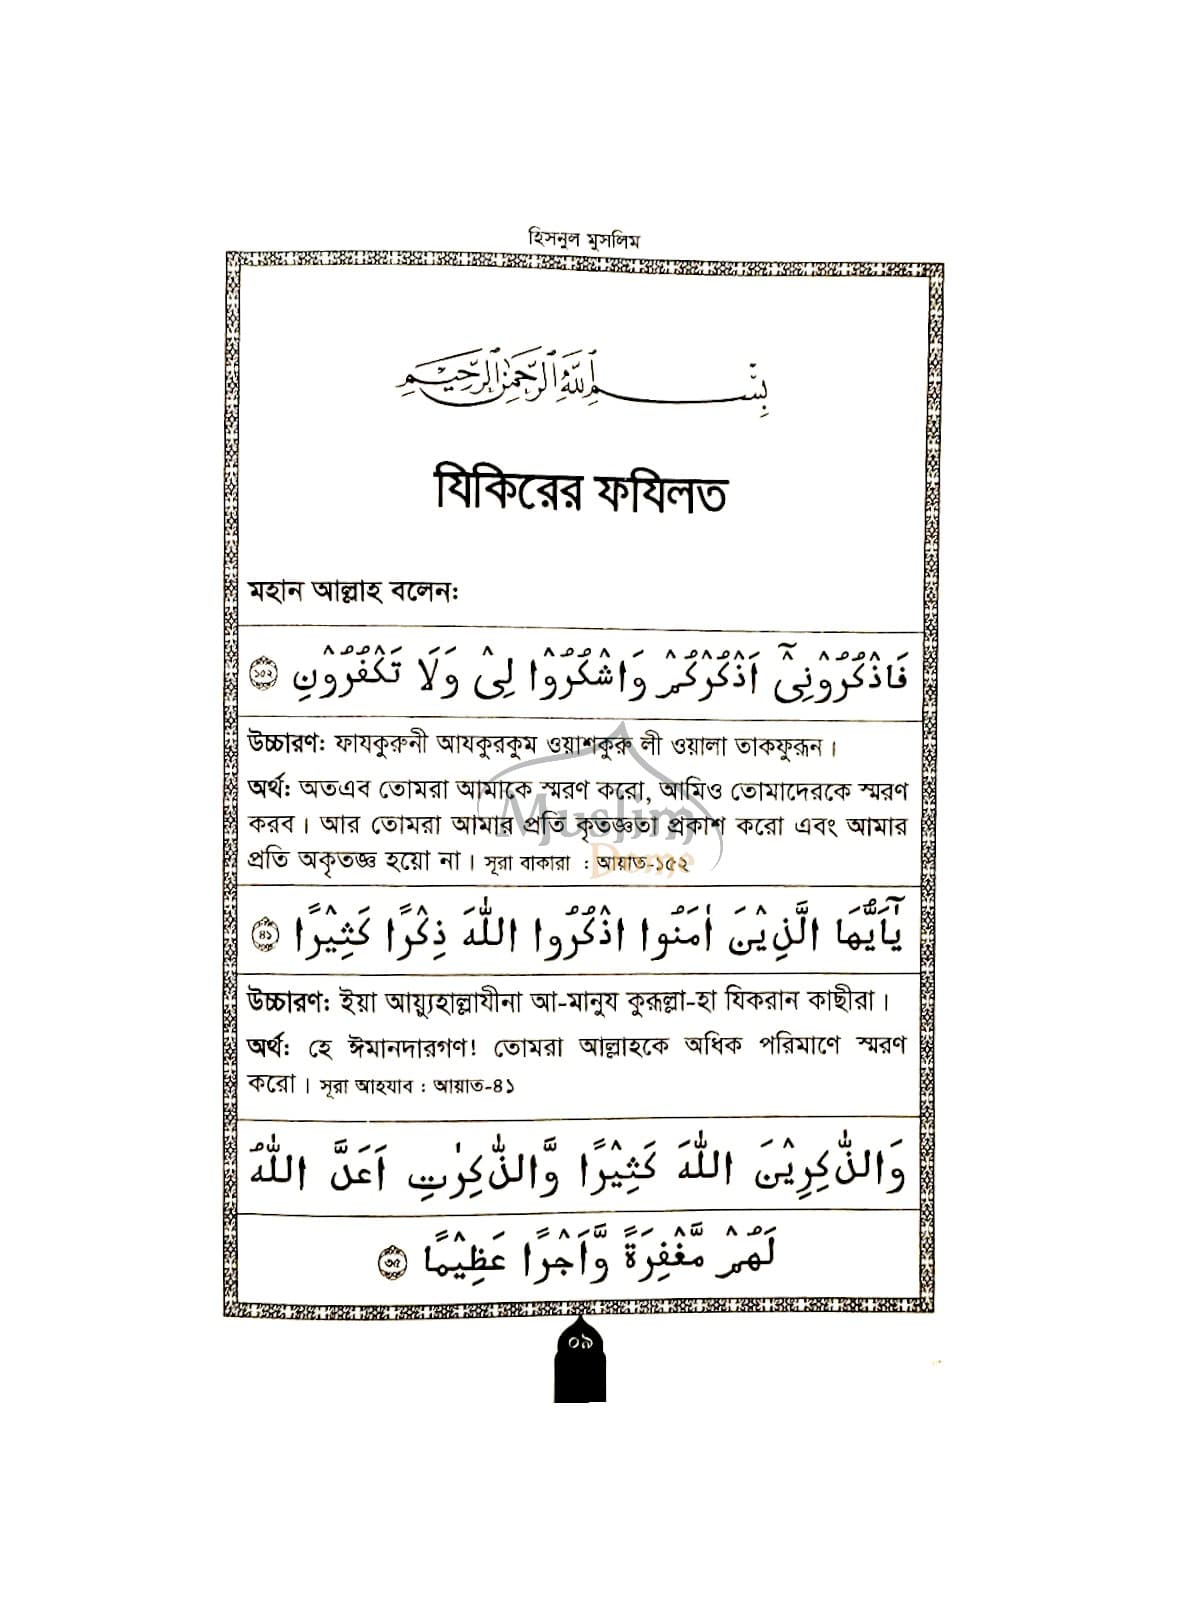 হিসনুল মুসলিম
بِسْمِ اللَّهِ الرَّحْمَٰنِ الرَّحِيمِ
যিকিরের ফযিলত
মহান আল্লাহ বলেন:
فَاذْكُرُوْنِیْۤ اَذْكُرْكُمْ وَاشْكُرُوْا لِیْ وَلَا تَكْفُرُوْنِ ১৫২
উচ্চারণ: ফাযকুরুনী আযকুরকুম ওয়াশকুরু লী ওয়ালা তাকফুরূন।
অর্থ: অতএব তোমরা আমাকে স্মরণ করো, আমিও তোমাদেরকে স্মরণ
করব। আর তোমরা আমার প্রতি কৃতজ্ঞতা প্রকাশ করো এবং আমার
প্রতি অকৃতজ্ঞ হয়ো না। সূরা বাকারা : আয়াত-১৫২
Muslim
Dome
يٰۤاَيُّهَا الَّذِيْنَ اٰمَنُوا اذْكُرُوا اللّٰهَ ذِكْرًا كَثِيْرًا ৪১
উচ্চারণ: ইয়া আয়্যুহাল্লাযীনা আ-মানুয কুরূল্লা-হা যিকরান কাছীরা।
অর্থ: হে ঈমানদারগণ! তোমরা আল্লাহকে অধিক পরিমাণে স্মরণ
করো। সূরা আহযাব : আয়াত-৪১
وَالذّٰكِرِيْنَ اللّٰهَ كَثِيْرًا وَّالذّٰكِرٰتِ اَعَدَّ اللّٰهُ
لَهُمْ مَّغْفِرَةً وَّاَجْرًا عَظِيْمًا ৩৫
০৯